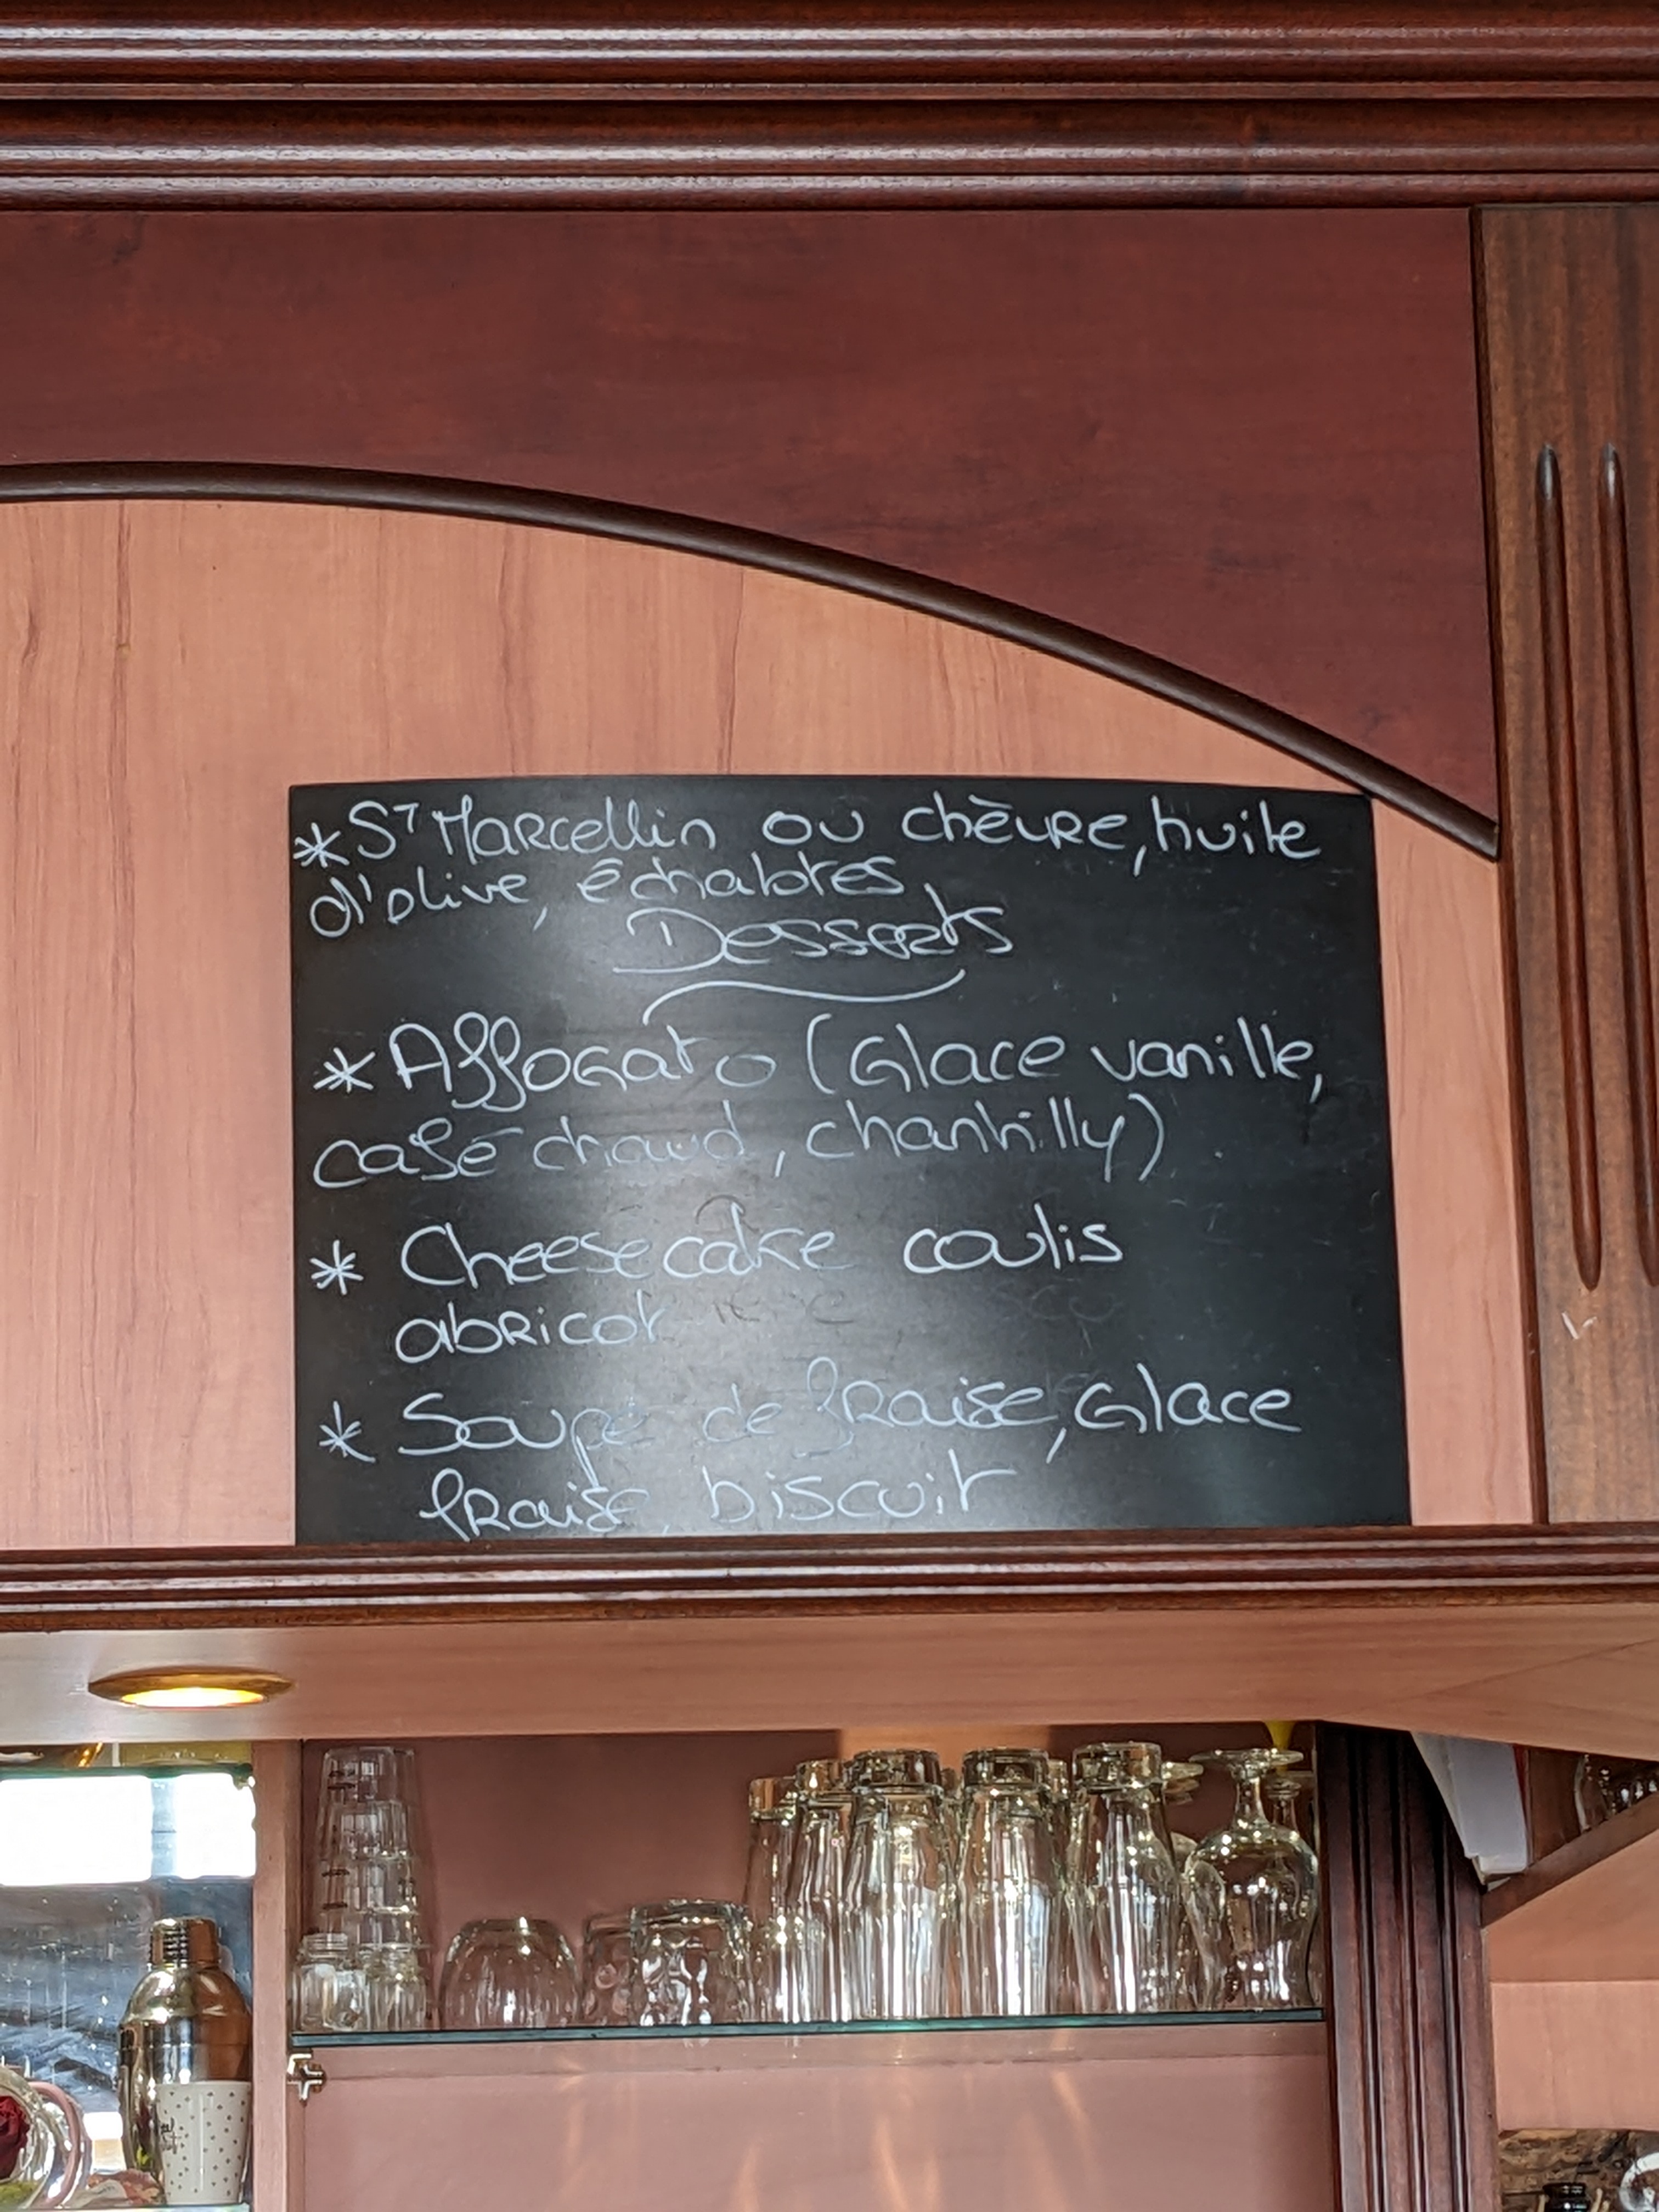 * St Marcellin ou chèvre, huile
d'olive, échalotes
Desserts
* Affogato (Glace vanille,
café chaud, chantilly)
* Cheesecake coulis
abricot
* Soupe de fraise, Glace
fraise, biscuit